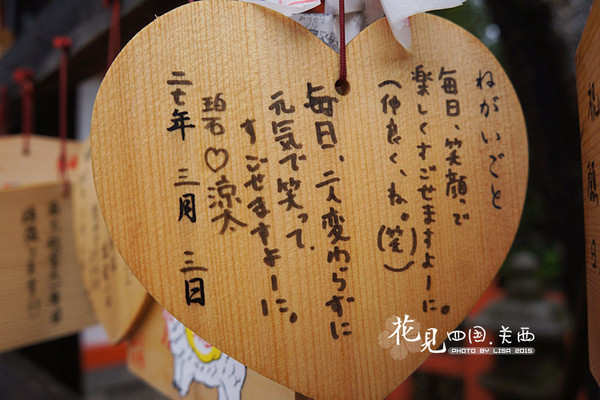 ねがいごと
毎日、笑顔で
楽しくすごせますよーに。
(仲良く、ね。(笑))
毎日、二人変わらずに
元気で笑って、
すごせますよーに。
珀♡涼太
二七年 三月 三日
花见四国.关西
PHOTO BY LISA 2015